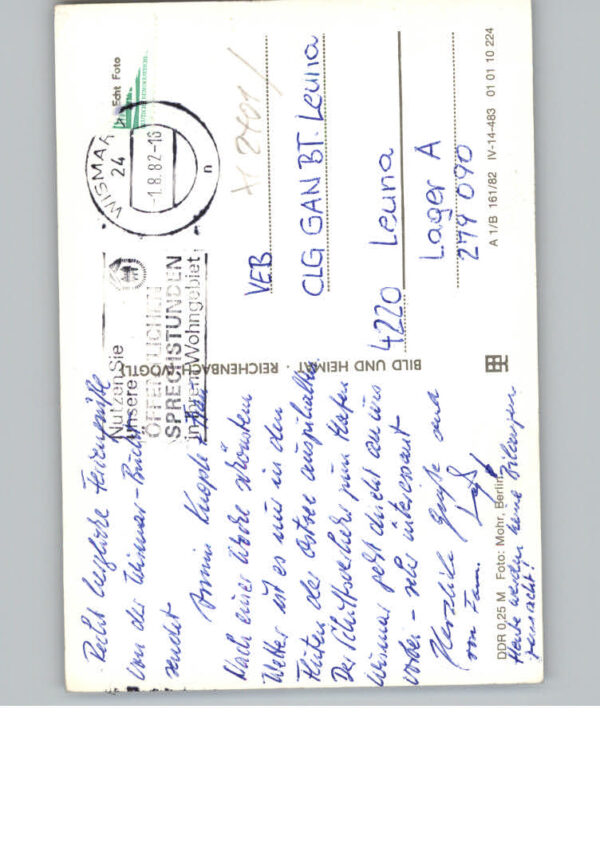 Recht herzliche Feriengrüße
von der Wismar-Bucht
sendet
Armin
Nach einer Woche schönstem
Wetter ist es nur in den
Fluten der Ostsee auszuhalten.
Der Schiffsverkehr zum Hafen
Wismar geht dicht an uns
vorbei - sehr interessant
Herzliche Grüße und
von Fam.
Heute werden keine
DDR 0,25 M Foto: Mohr, Berlin
BILD UND HEIMAT · REICHENBACH (VOGTL)
Nutzen Sie
unsere
ÖFFENTLICHEN
SPRECHSTUNDEN
in Ihrem Wohngebiet
WISMAR
24
-1.8.82-16
n
Echt Foto
VEB
CLG GAN BT. Leuna
4220 Leuna
Lager A
279 090
A 1/B 161/82 IV-14-483 01 01 10 224